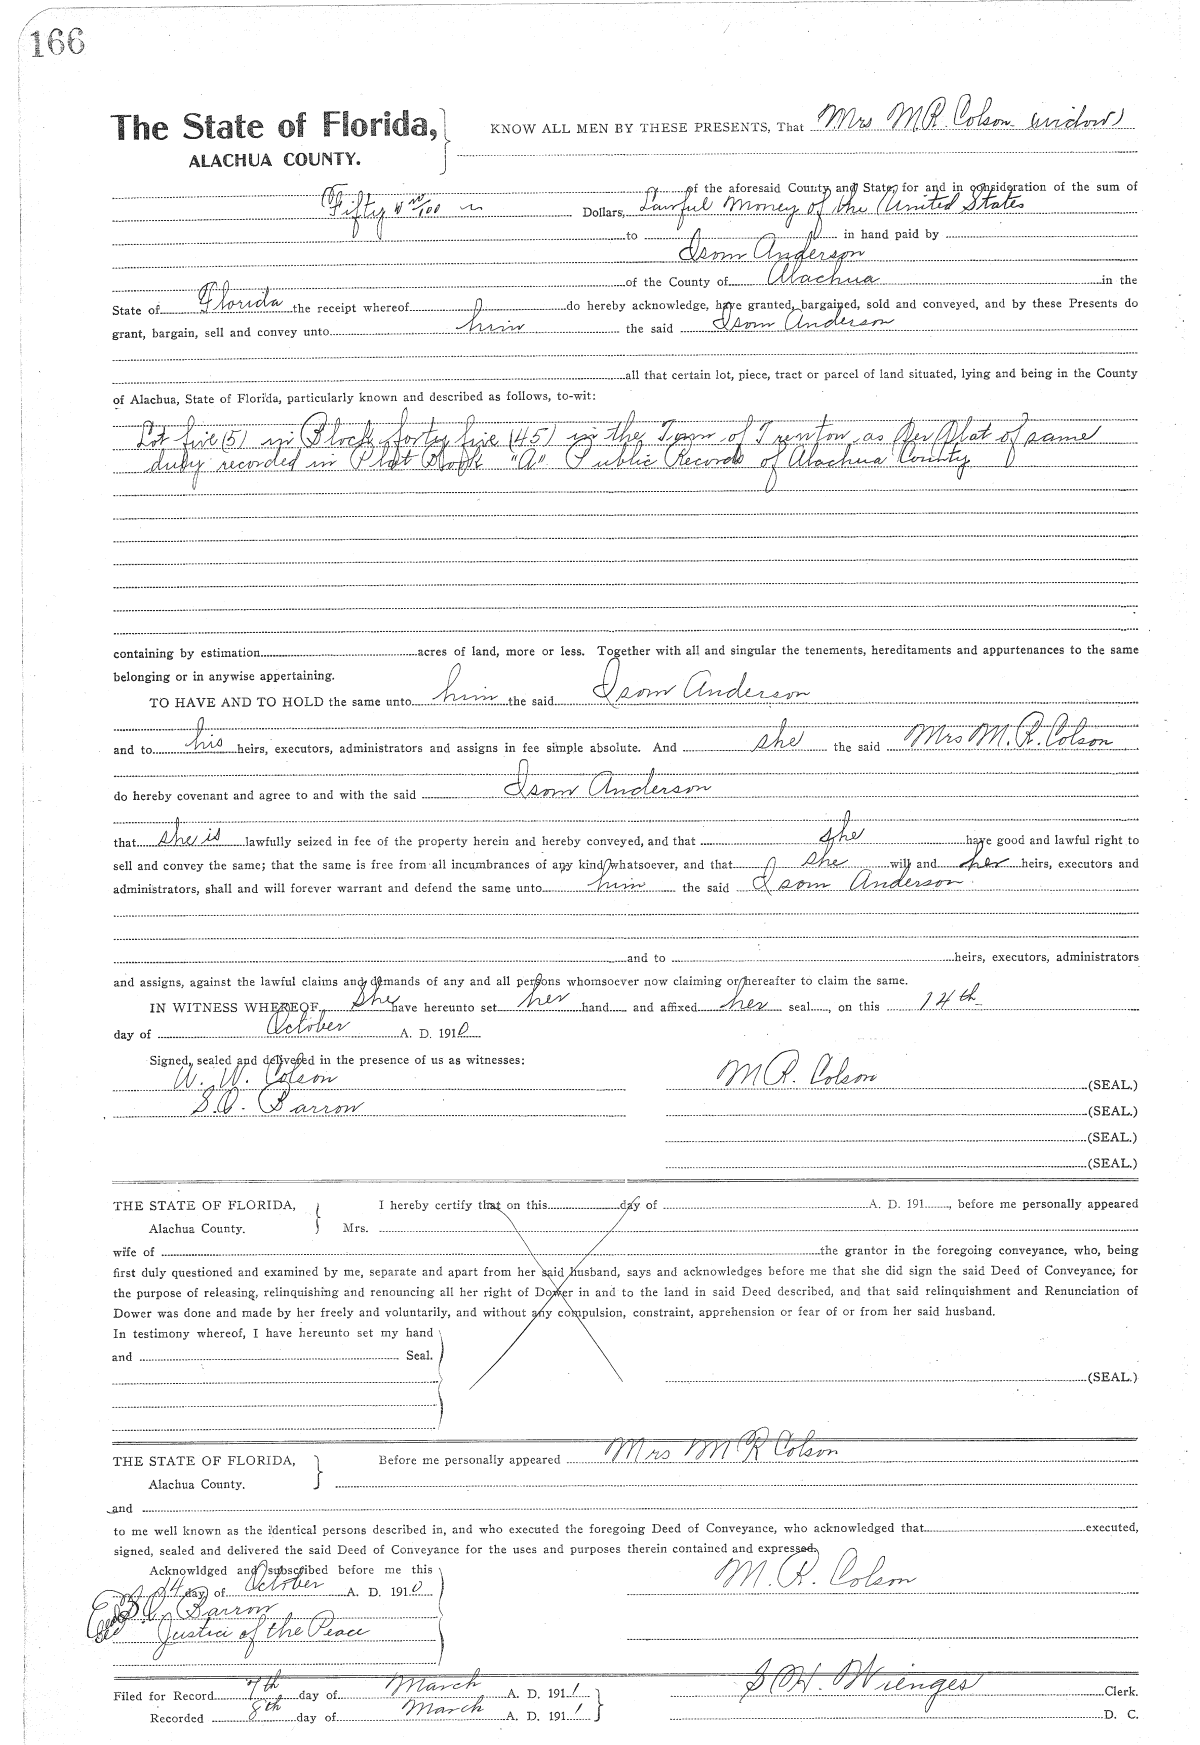 166
The State of Florida,
ALACHUA COUNTY.
KNOW ALL MEN BY THESE PRESENTS, That Mrs M.R. Colson (widow)
of the aforesaid County and State, for and in consideration of the sum of
Fifty & no/100 Dollars, Lawful Money of the United States
to in hand paid by
Isom Anderson
of the County of Alachua in the
State of Florida the receipt whereof do hereby acknowledge, have granted, bargained, sold and conveyed, and by these Presents do
grant, bargain, sell and convey unto him the said Isom Anderson
all that certain lot, piece, tract or parcel of land situated, lying and being in the County
of Alachua, State of Florida, particularly known and described as follows, to-wit:
Lot five (5) in Block forty five (45) in the Town of Trenton as Per Plat of same
duly recorded in Plat Book "A" Public Records of Alachua County
containing by estimation acres of land, more or less. Together with all and singular the tenements, hereditaments and appurtenances to the same
belonging or in anywise appertaining.
TO HAVE AND TO HOLD the same unto him the said Isom Anderson
and to his heirs, executors, administrators and assigns in fee simple absolute. And she the said Mrs M. R. Colson
do hereby covenant and agree to and with the said Isom Anderson
that she is lawfully seized in fee of the property herein and hereby conveyed, and that she have good and lawful right to
sell and convey the same; that the same is free from all incumbrances of any kind whatsoever, and that she will and her heirs, executors and
administrators, shall and will forever warrant and defend the same unto him the said Isom Anderson
and to heirs, executors, administrators
and assigns, against the lawful claims and demands of any and all persons whomsoever now claiming or hereafter to claim the same.
IN WITNESS WHEREOF, She have hereunto set her hand and affixed her seal, on this 14th
day of October A. D. 1910
Signed, sealed and delivered in the presence of us as witnesses:
W. W. Colson M R. Colson (SEAL.)
S.O. Barrow (SEAL.)
(SEAL.)
(SEAL.)
THE STATE OF FLORIDA, I hereby certify that on this day of A. D. 191 , before me personally appeared
Alachua County. Mrs.
wife of the grantor in the foregoing conveyance, who, being
first duly questioned and examined by me, separate and apart from her said husband, says and acknowledges before me that she did sign the said Deed of Conveyance, for
the purpose of releasing, relinquishing and renouncing all her right of Dower in and to the land in said Deed described, and that said relinquishment and Renunciation of
Dower was done and made by her freely and voluntarily, and without any compulsion, constraint, apprehension or fear of or from her said husband.
In testimony whereof, I have hereunto set my hand
and Seal.
(SEAL.)
THE STATE OF FLORIDA, Before me personally appeared Mrs M R Colson
Alachua County.
and
to me well known as the identical persons described in, and who executed the foregoing Deed of Conveyance, who acknowledged that executed,
signed, sealed and delivered the said Deed of Conveyance for the uses and purposes therein contained and expressed.
Acknowldged and subscribed before me this M. R. Colson
14 day of October A. D. 1910
S.O. Barrow
Justice of the Peace
Filed for Record 7th day of March A. D. 1911 S H. Wienges Clerk.
Recorded 8th day of March A. D. 1911 D. C.